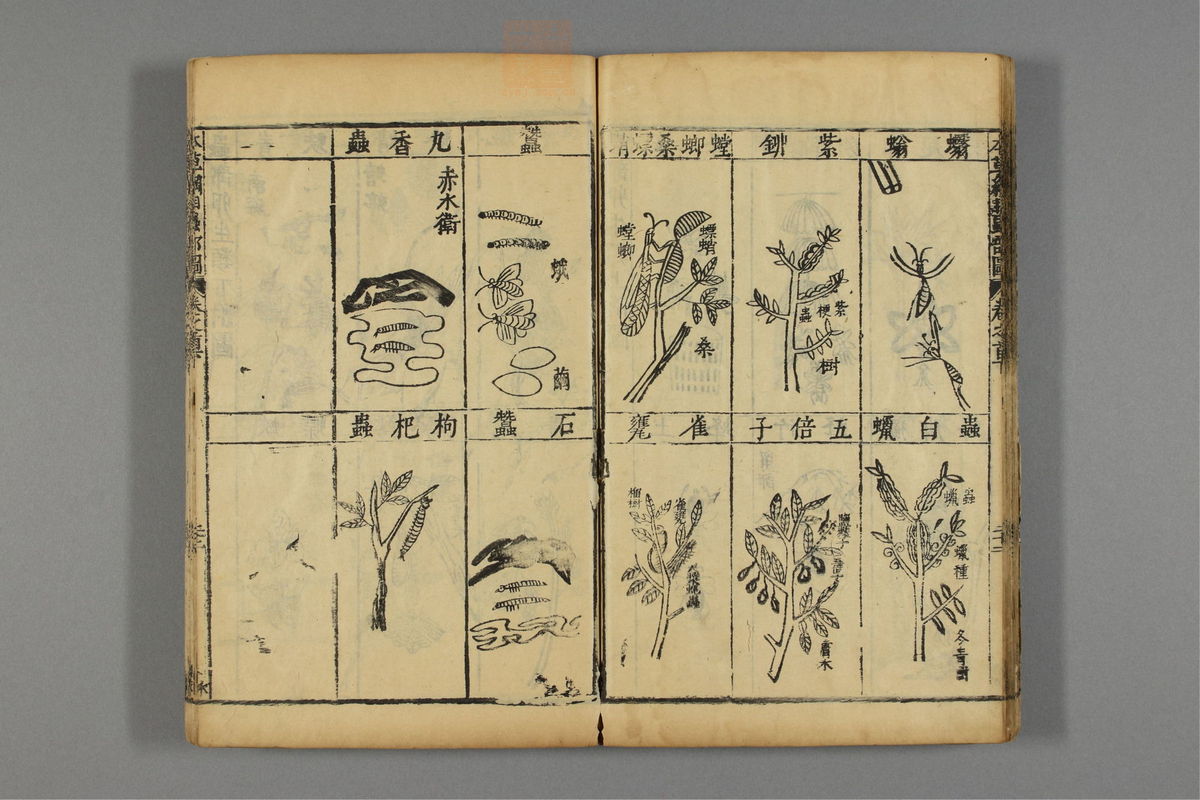 蠮螉
紫鉚
螳螂桑螵蛸
紫
梗
蟲
樹
螵蛸
螳螂
桑
蟲白蠟
五倍子
雀甕
蟲
蠟
蠟種
冬青樹
膚木
榴樹
雀甕
蠶
九香蟲
蛾
繭
赤水衛
石蠶
枸杞蟲